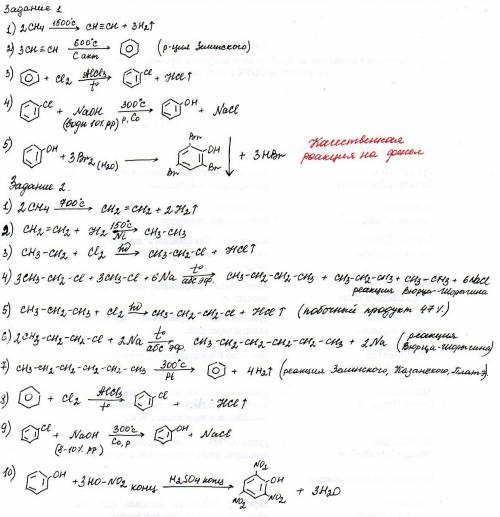 Задание 1
1) 2CH4 1500°C CH≡CH + 3H2↑
2) 3CH≡CH 600°C C акт (р-ция Зелинского)
3) + Cl2 AlCl3 t° Cl + HCl↑
4) Cl + NaOH (водн 10% рр) 300°C p, Co OH + NaCl
5) OH + 3Br2 (H2O) Br OH Br Br ↓ + 3HBr Качественная реакция на фенол
Задание 2.
1) 2CH4 700°C CH2=CH2 + 2H2↑
2) CH2=CH2 + H2 150°C Ni CH3-CH3
3) CH3-CH2 + Cl2 hν CH3-CH2-Cl + HCl↑
4) 3CH3-CH2-Cl + 3CH3-Cl + 6Na t° абс эф. CH3-CH2-CH2-CH3 + CH3-CH2-CH3 + CH3-CH3 + 6NaCl
реакция Вюрца-Шорыгина
5) CH3-CH2-CH3 + Cl2 hν CH3-CH2-CH2-Cl + HCl↑ (побочный продукт 47%)
6) 2CH3-CH2-CH2-Cl + 2Na t° абс эф. CH3-CH2-CH2-CH2-CH2-CH3 + 2Na (реакция Вюрца-Шорыгина)
7) CH3-CH2-CH2-CH2-CH2-CH3 300°C Pt + 4H2↑ (реакция Зелинского, Казанского, Платэ).
8) + Cl2 AlCl3 t° Cl + HCl↑
9) Cl + NaOH (8-10% рр) 300°C Co, p OH + NaCl
10) OH + 3HO-NO2 конц H2SO4 конц NO2 OH NO2 NO2 + 3H2O